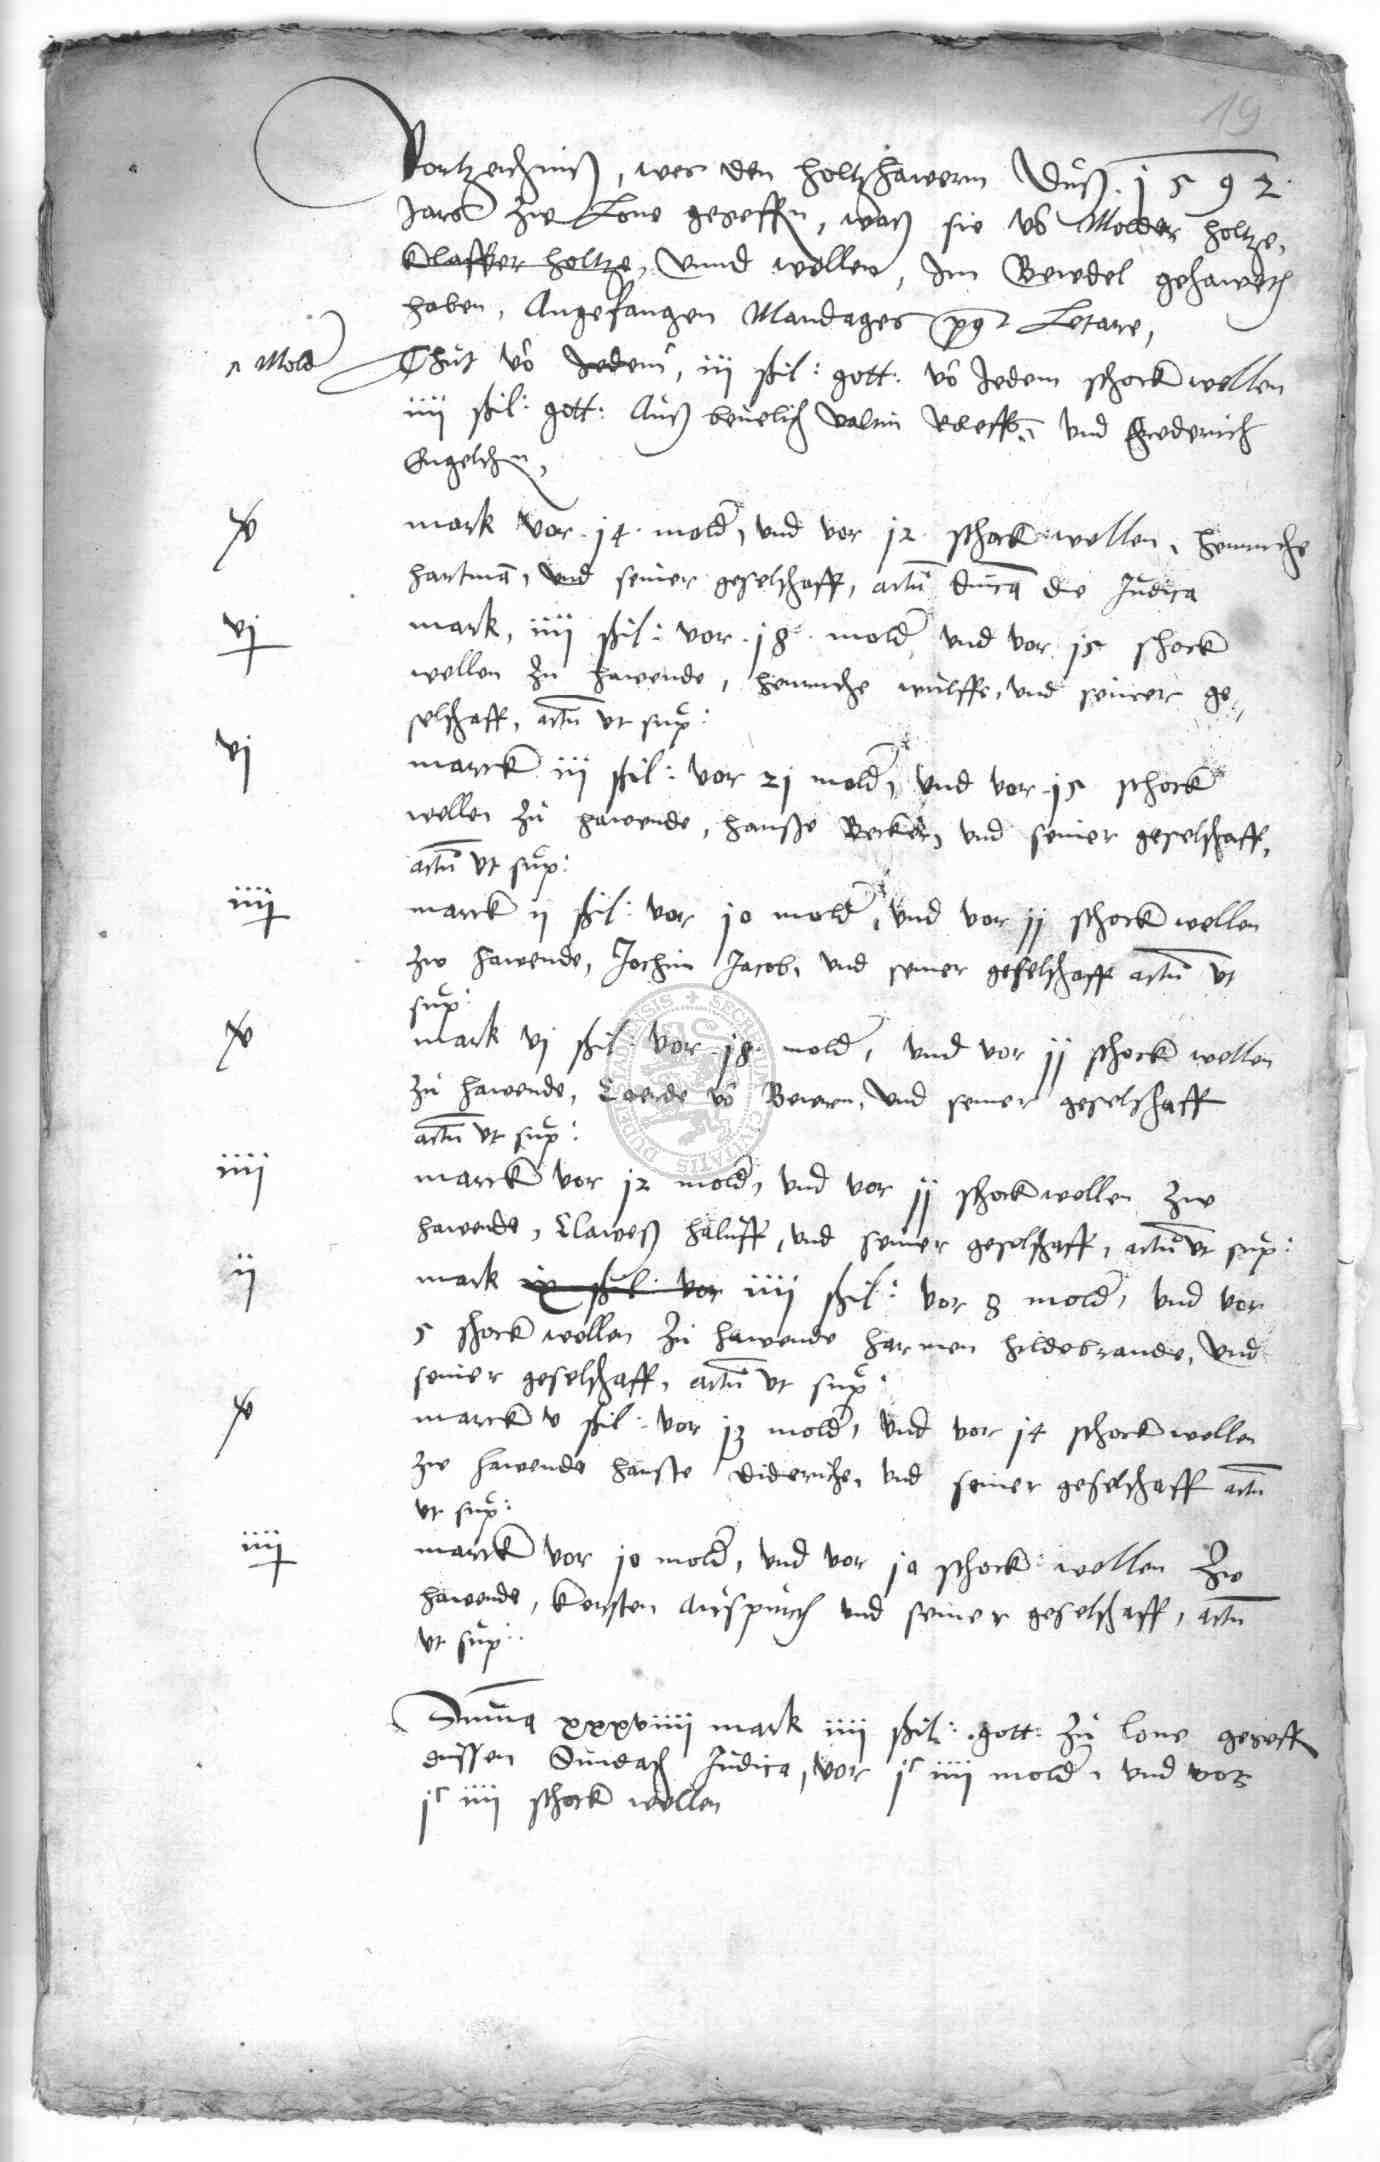 19
Vortzeichniß, wes den holtzhawern Duß . 1592 .
Jars zw Lone gegeffn, waß sie vô Molder holtze,
Klaffter holtze, vnnd wellen, Im Bewdel gehaweth
haben, Angefangen Mandages pq Letare,
^ Mold
Thut vô Jedem, iij ßil: gott: vô Jedem schock wellen
iiij ßil: gott: Auß beuelich und Frederich
Engelchn,
mark vor . 14 . mold, vnd vor 12 schock wellen, henriche
hartmã, vnd seiner geselschaff, actũ die Judica
vj mark, iiij ßil: vor . 18 . mold vnd vor 15 schock
wellen zu hawende, henriche wulffe, vnd seiner ge-
selschaff, actũ vt sup:
vj marck iij ßil: vor 21 mold, vnd vor 15 schock
wellen zu hawende, hanße Becker, vnd seiner geselschaff,
actũ vt sup:
iiij marck ij ßil: vor 10 mold, vnd vor 11 schock wellen
zw hawende, Jochim Jacob, vnd seiner geselschaff actũ vt
sup:
mark vj ßil: vor . 18 . mold, vnd vor 11 schock wellen
zu hawende, Coerde vô Bevern, vnd seiner geselschaff
actũ vt sup:
iiij marck vor 12 mold, vnd vor 11 schock wellen zw
hawende, Claweß haluff, vnd seiner geselschaff, actũ vt sup:
ij mark ix ßil: vor iiij ßil: vor 8 mold, vnd vor
5 schock wellen zu hawende harmen hildebrande, vnd
seiner geselschaff, actũ vt sup:
marck v ßil: vor 13 mold, vnd vor 14 schock wellen
zw hawende hanße Dideriche, vnd seiner geselschaff actũ
vt sup:
iiij marck vor 10 mold, vnd vor 10 schock wellen zw
hawende, Kersten Aurspurch vnd seiner geselschaff, actũ
vt sup:
Suma xxxviiij mark iiij ßil: gott: zu lone gegeff
dussen Sundach Judica, vor jc iiij mold, vnd vor
jc iiij schock wellen
SECRETUM CIVITATIS DUDERSTADENSIS